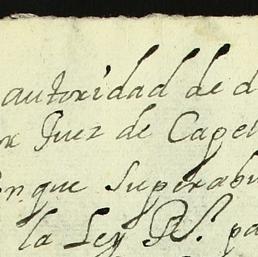 autoridad de d
or Juez de Capel
en que superabu
la Ley Rl. pa